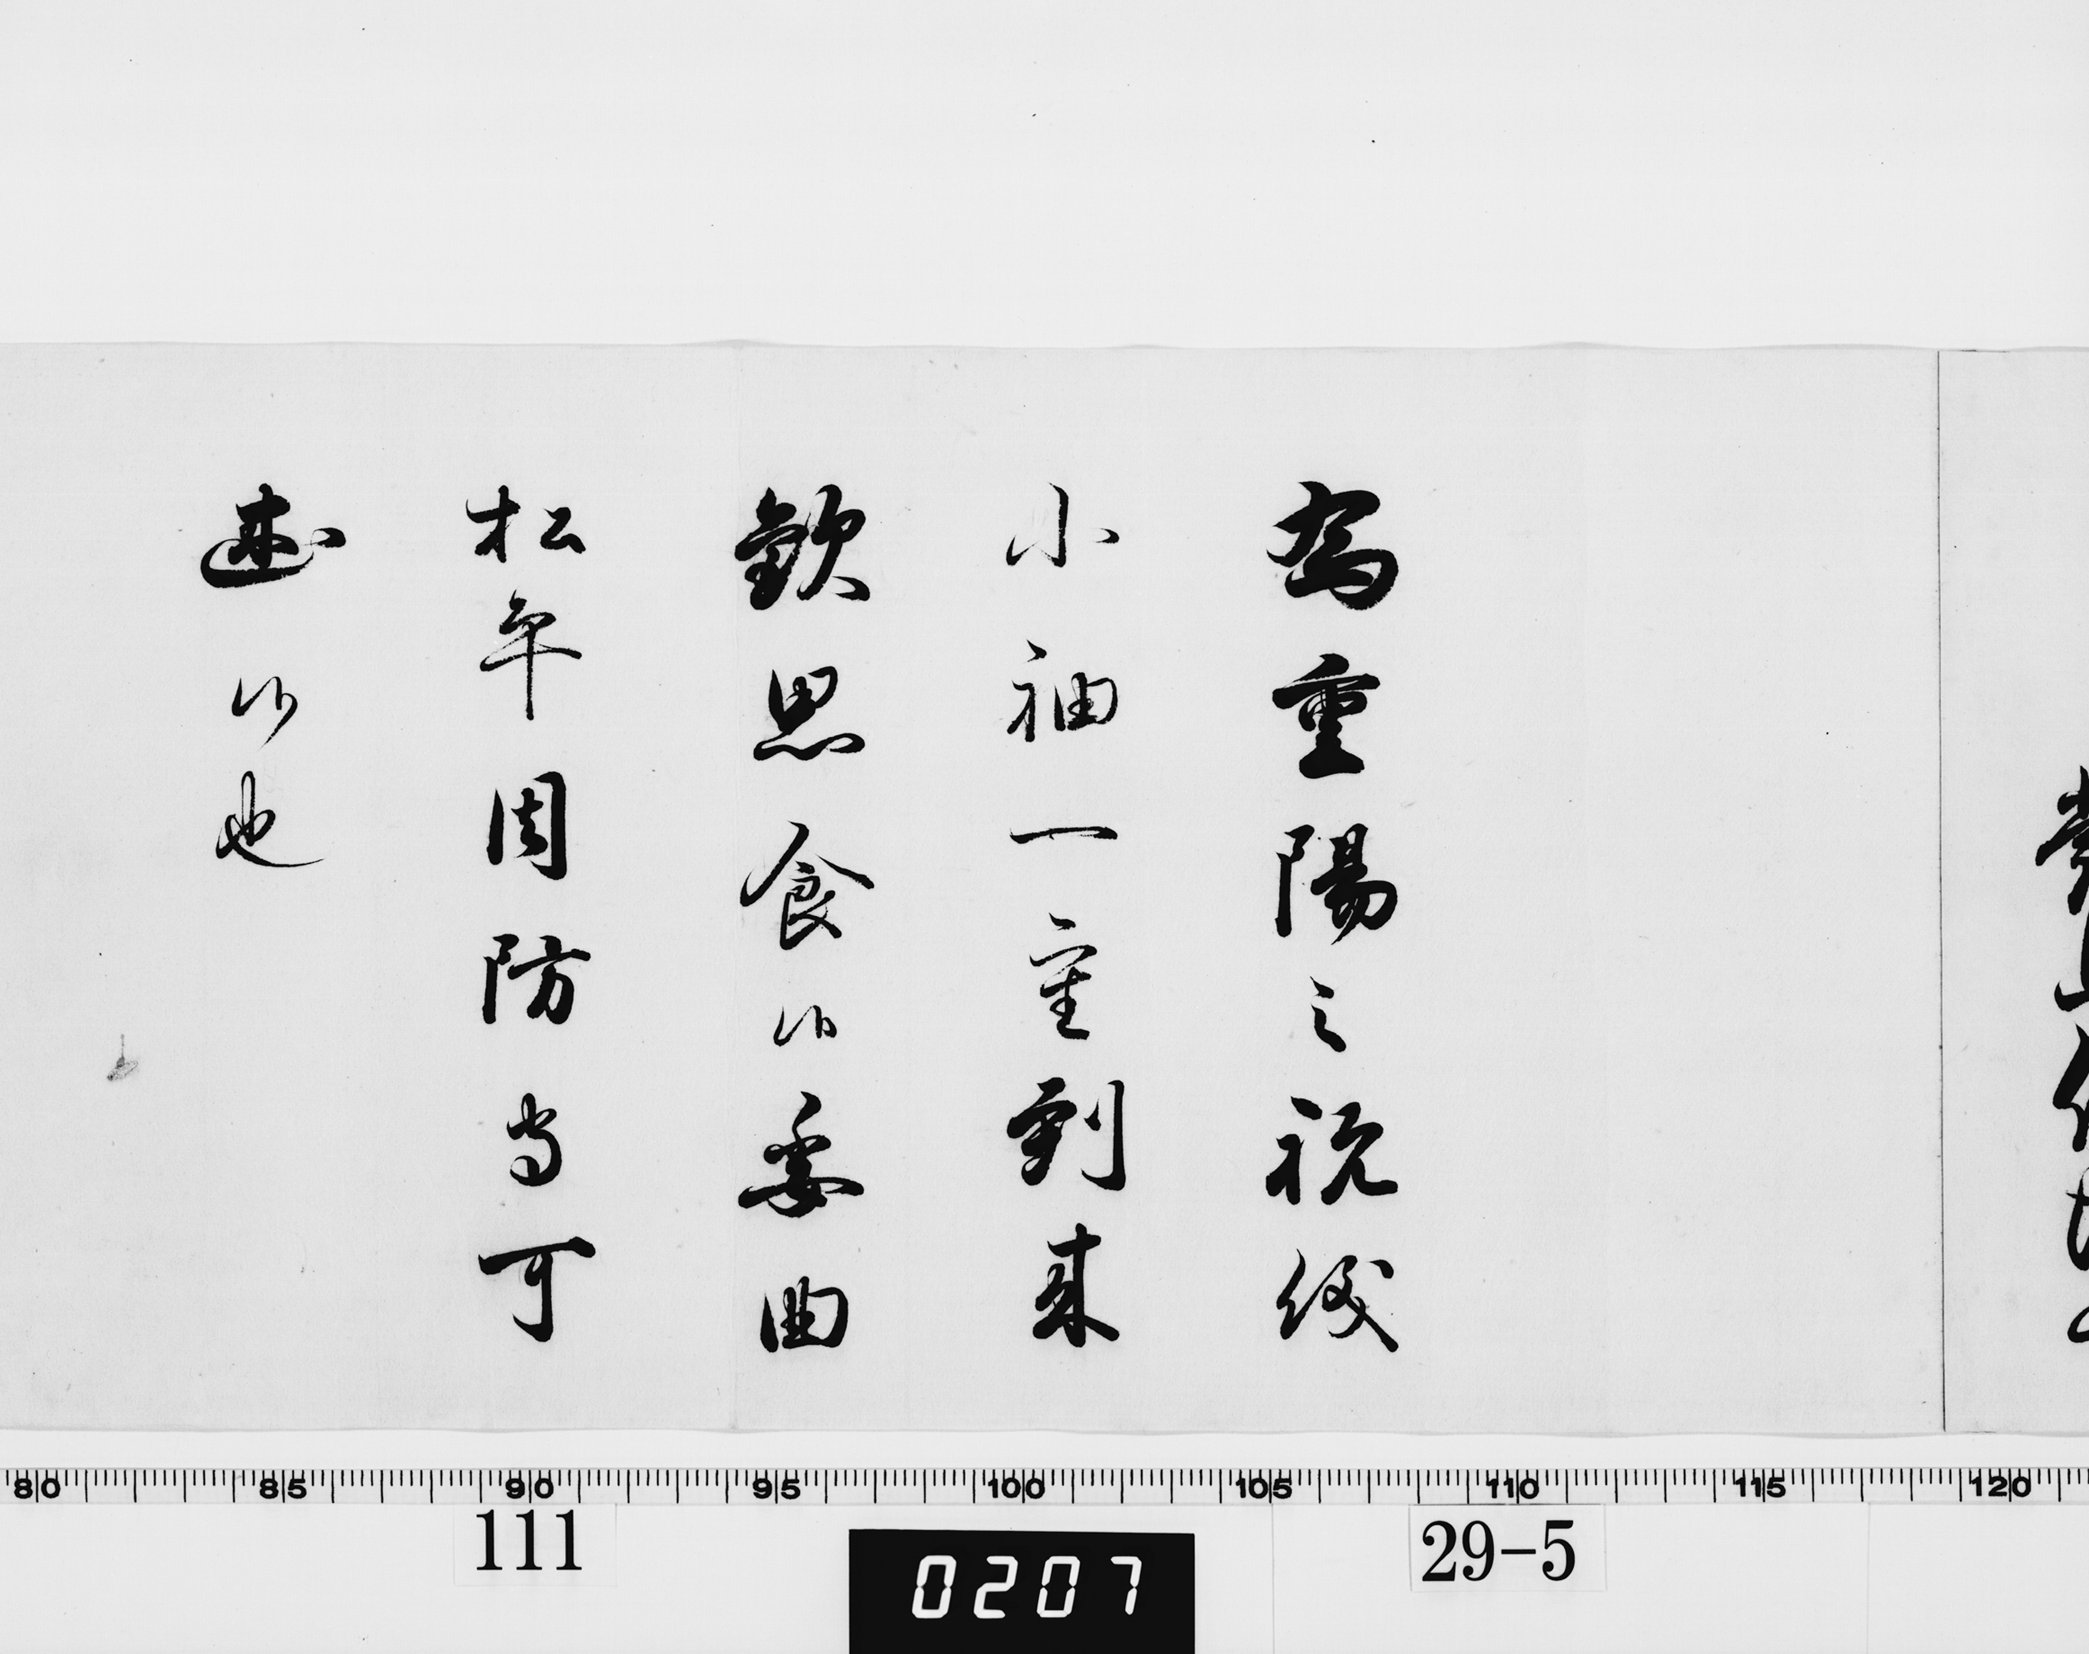 為重陽之祝儀
小袖一重到来
歓思食候委曲
松平周防守可
述候也
80 85 90 95 100 105 110 115 120
111
29-5
0207